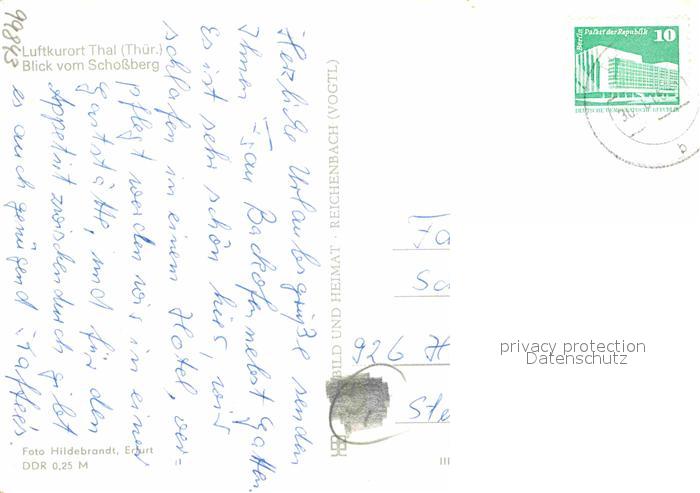 99843
Luftkurort Thal (Thür.)
Blick vom Schoßberg
Herzliche Urlaubsgrüße senden
Ihnen Frau Backofen nebst Gatten.
Es ist sehr schön hier, wir
schlafen in einem Hotel, ver=
pflegt werden wir in einer
Gaststätte, und für den
Appetit zwischendurch gibt
es auch genügend Kaffees.
Foto Hildebrandt, Erfurt
DDR 0,25 M
BILD UND HEIMAT · REICHENBACH (VOGTL)
III
Berlin Palast der Republik
10
DEUTSCHE DEMOKRATISCHE REPUBLIK
b
Fa
Sc
926 H
Ste
privacy protection
Datenschutz